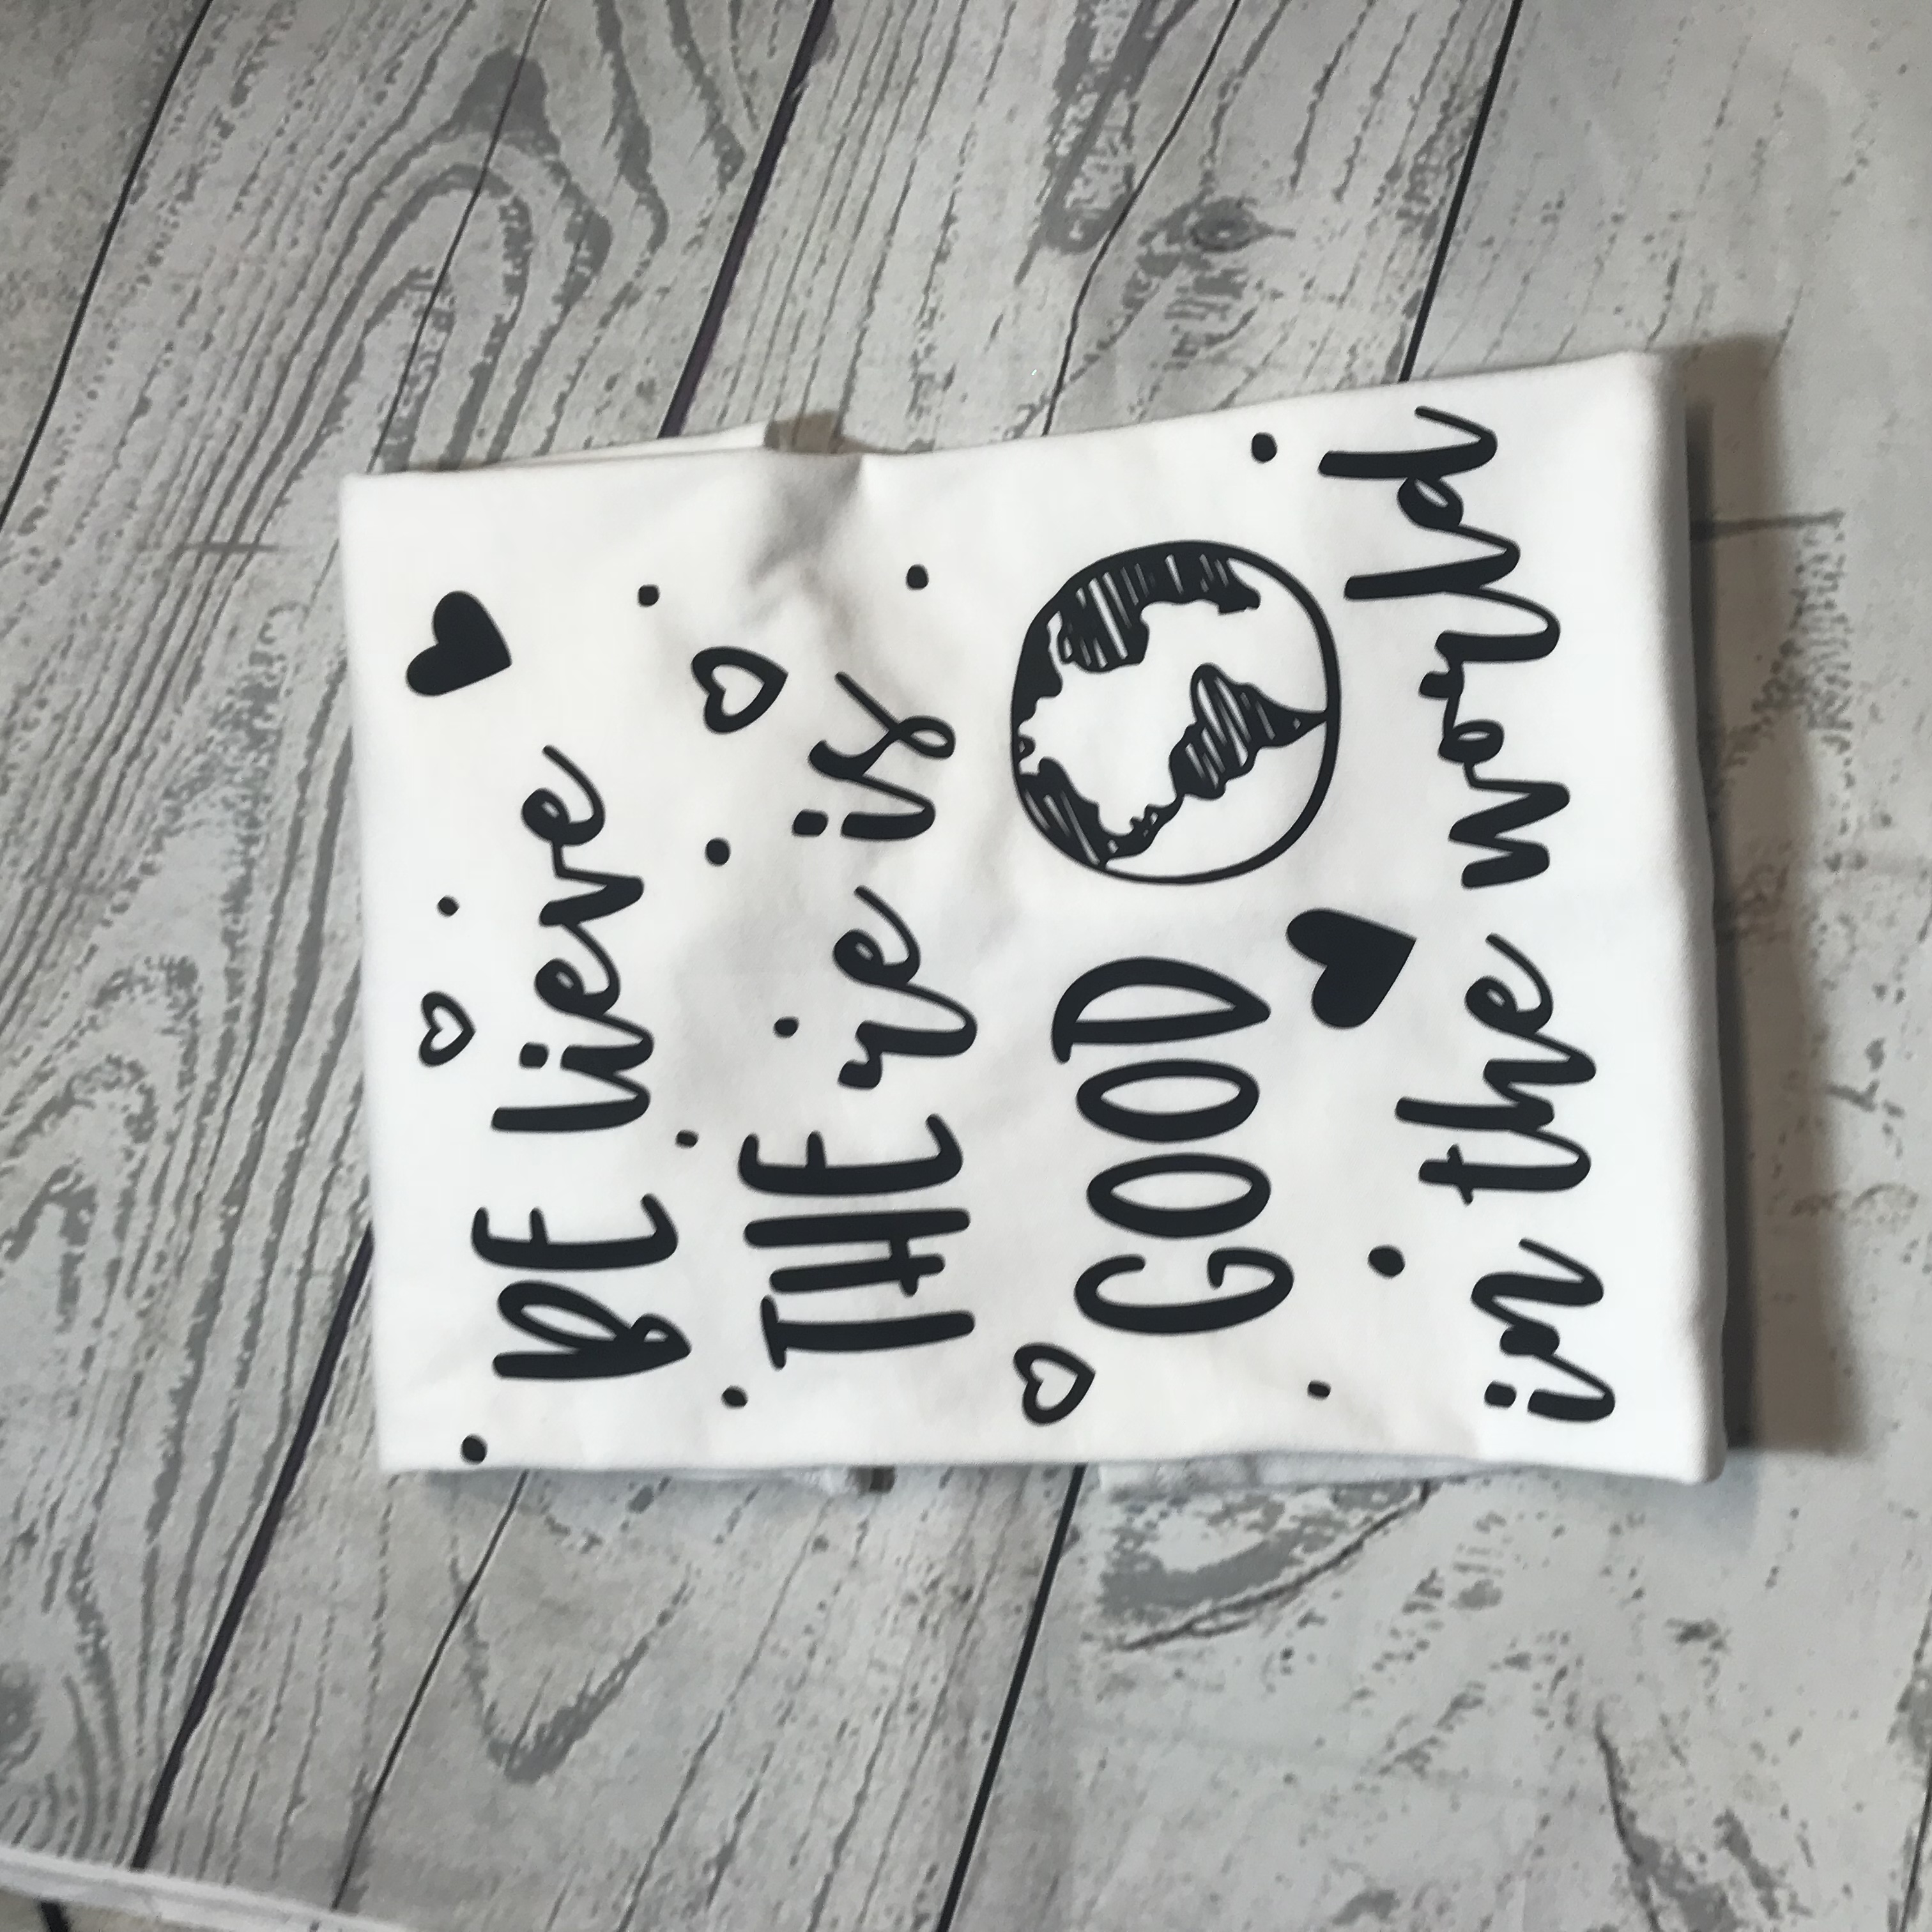 BE lieve
THE re is
GOOD
in the world